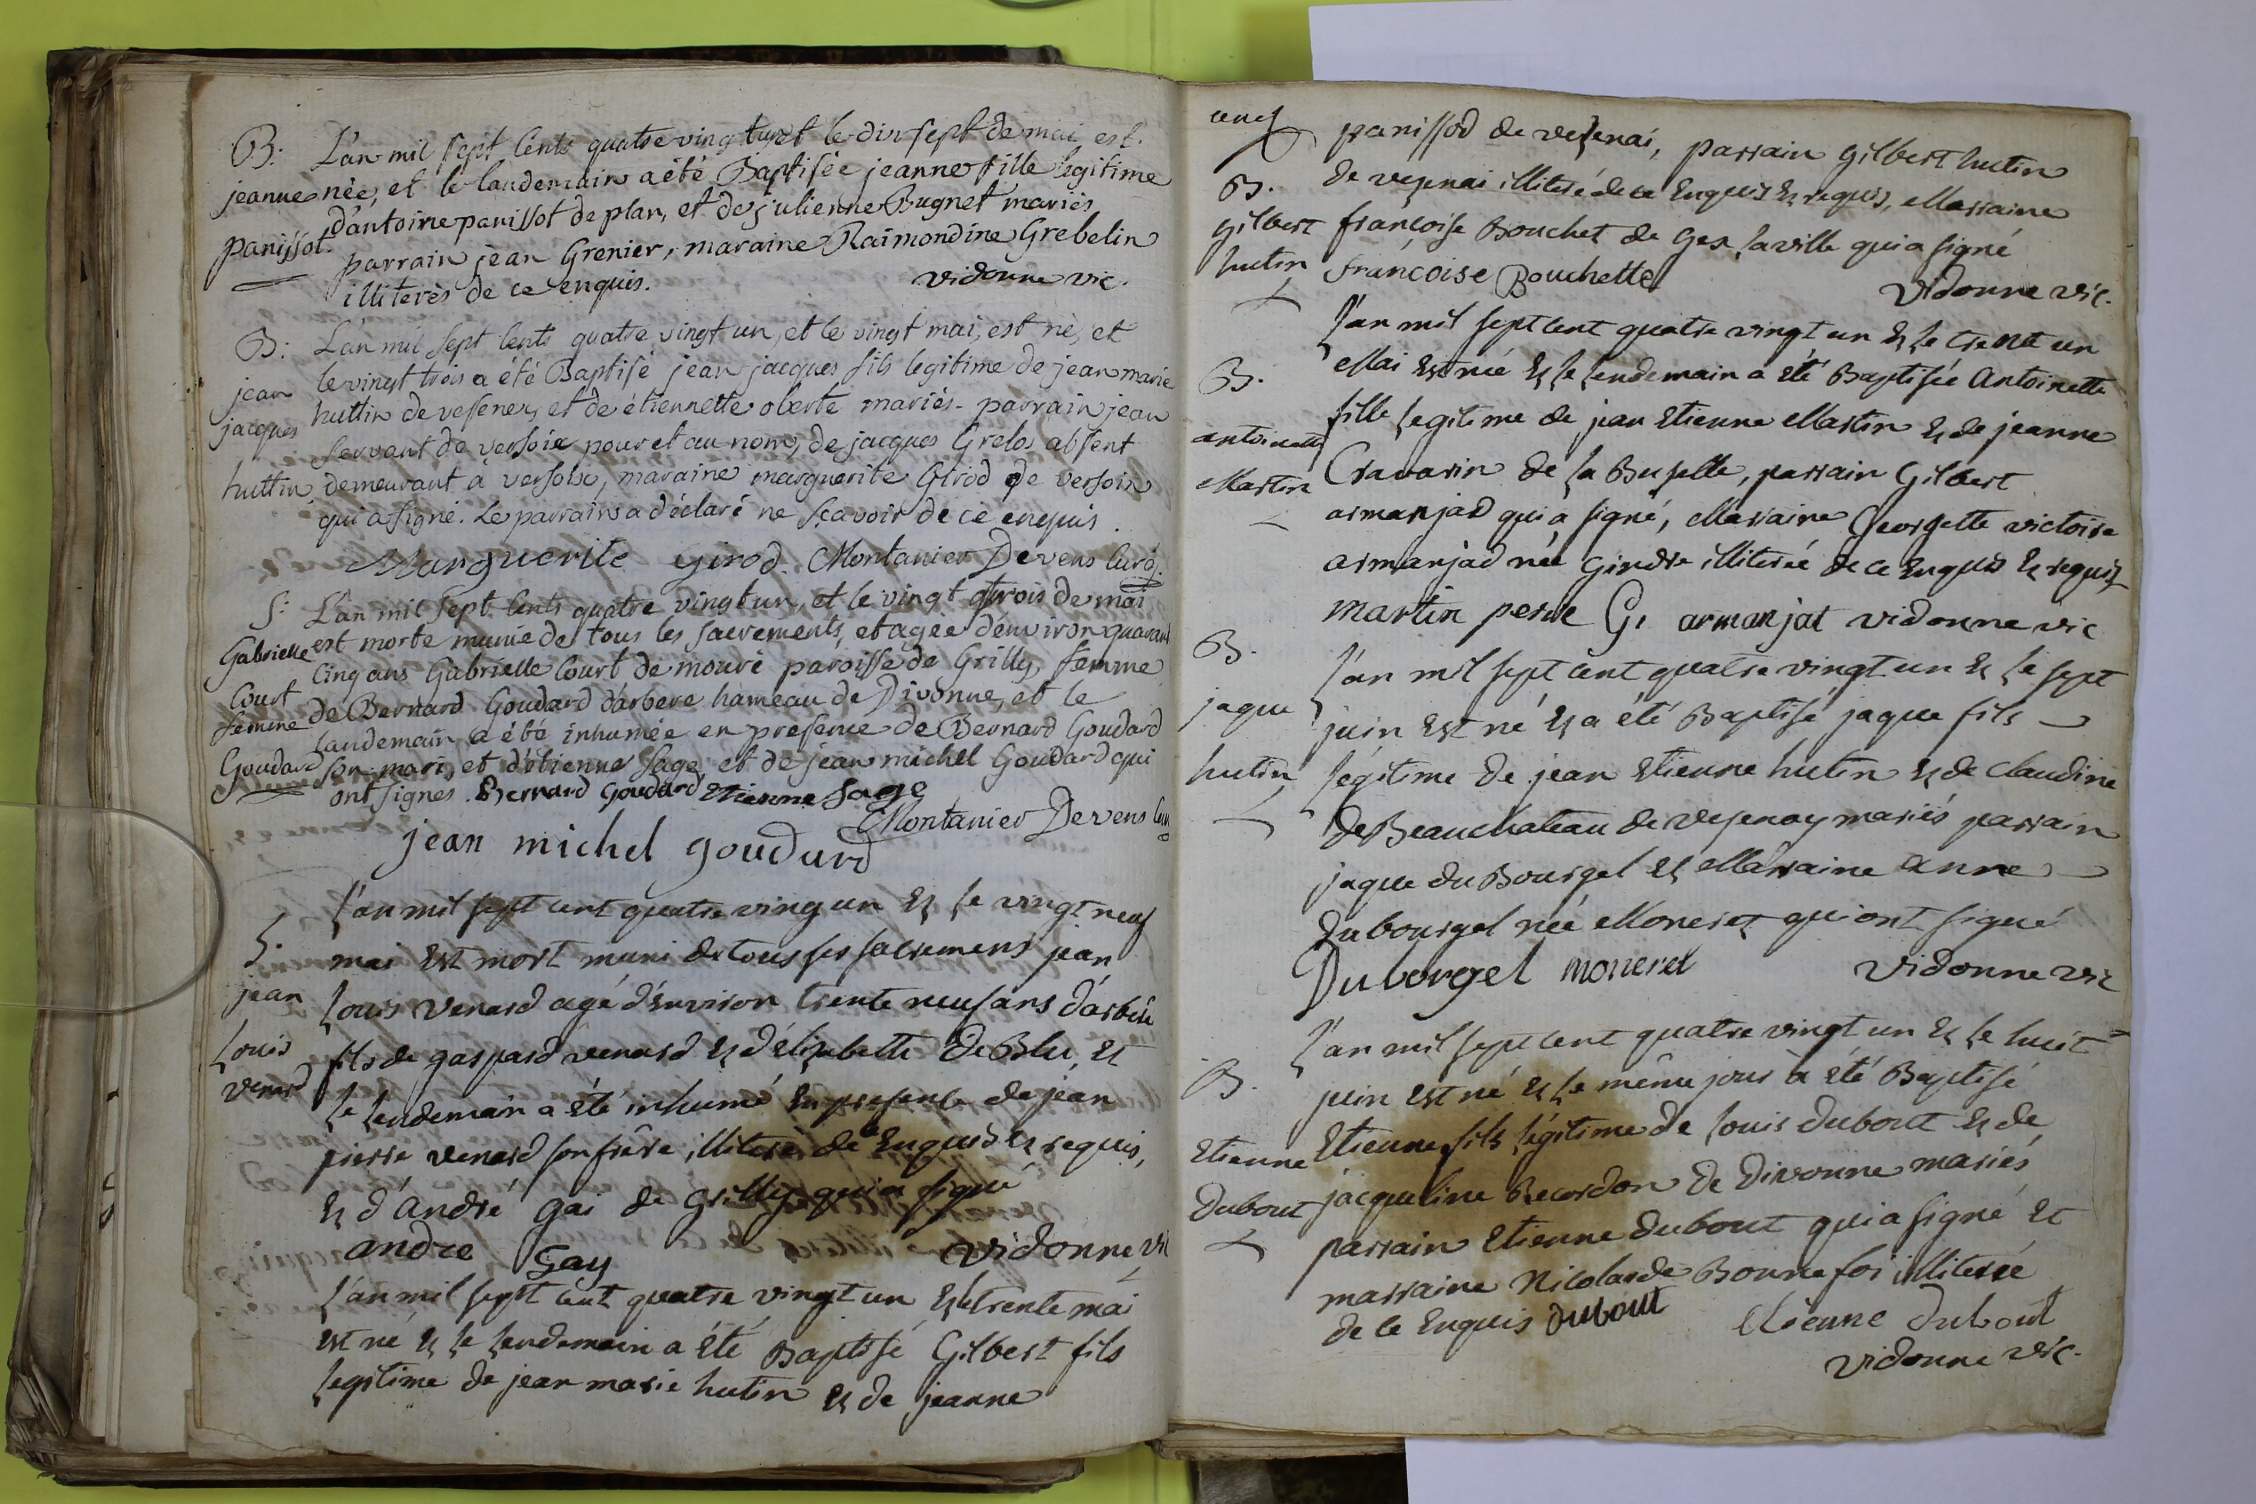 B:
jeanne
panissot
L'an mil sept cents quatre vingt un et le dix sept de mai est
née, et le landemain a été Baptisée jeanne fille legitime
d'antoine panissot de plan, et de julienne Bugnet mariés
parrain jean Grenier, maraine Raimondine Grebelin
illiterès de ce enquis. vidonne vic.
B:
jean
jacques
huttin
L'an mil sept cents quatre vingt un, et le vingt mai, est né, et
le vingt trois a été Baptisé jean jacques fils legitime de jean marie
huttin de vesenex, et de étiennette oberte mariés - parrain jean
servant de versoix pour et au nom de jacques Grelos absent
demeurant à versoix, maraine marguerite Girod de versoix
qui a signé. Le parrain a déclaré ne sçavoir de ce enquis.
Marguerite girod. Montanier Devens curé.
S:
Gabrielle
Court
femme
Goudard
L'an mil sept cents quatre vingt un, et le vingt trois de mai
est morte munie de tous les sacrements, et agee d'environ quarante
cinq ans Gabrielle Court de mouré paroisse de Grilly, femme
de Bernard Goudard d'arbere hameau de Divonne, et le
landemain a été inhumée en presence de Bernard Goudard
son mari, et d'étienne sage, et de jean michel Goudard qui
ont signés. Bernard Goudard Etienne sage
Montanier Devens curé
jean michel goudard
S.
jean
Louis
venard
L'an mil sept cent quatre ving un et le vingt neuf
mai est mort muni de tous ses sacremens jean
Louis venard agé d'environ trente neuf ans d'arbere
fils de gaspard venard et d'élizabette De Blu, et
le lendemain a été inhumé en presence de jean
pierre venard son frère, illiteré de ce enquis et requis,
et d'andré gai de Grilly qui a signé
andre Gay vidonne vic
L'an mil sept cent quatre vingt un et le trente mai
est né et le lendemain a été Baptisé Gilbert fils
legitime de jean marie hutin et de jeanne
B.
gilbert
hutin
panissod de vesenai, parrain gilbert hutin
de vesenai illiteré de ce enquis et requis, Marraine
françoise Bouchet de Gex la ville qui a signé
françoise Bouchette vidonne vic.
B.
antoinette
Martin
L'an mil sept cent quatre vingt un et le trente un
Mai est née et le lendemain a été Baptisée Antoinette
fille legitime de jean Etienne Martin et de jeanne
Cravarin de la Buselle, parrain Gilbert
armanjad qui a signé, Marraine Georgette victoire
armanjad née Gindre illiterée de ce enquis et requis
martin pere G. armanjat vidonne vic
B.
jaque
hutin
L'an mil sept cent quatre vingt un et le sept
juin est né et a été Baptisé jaque fils
légitime de jean Etienne hutin et de Claudine
de Beauchateau de vesenoy mariés parrain
jaque du Bourgel et Marraine anne
Dubourgel née Moneret qui ont signé
Duborgel moneret vidonne vic
B.
Etienne
Dubout
L'an mil sept cent quatre vingt un et le huit
juin est né et le même jour a été Baptisé
Etienne fils légitime de Louis dubout et de
jacqueline Recordon de Divonne mariés
parrain Etienne dubout qui a signé et
marraine Nicolarde Bonnefoi illiterée
de ce enquis dubout Etienne dubout
vidonne vic.